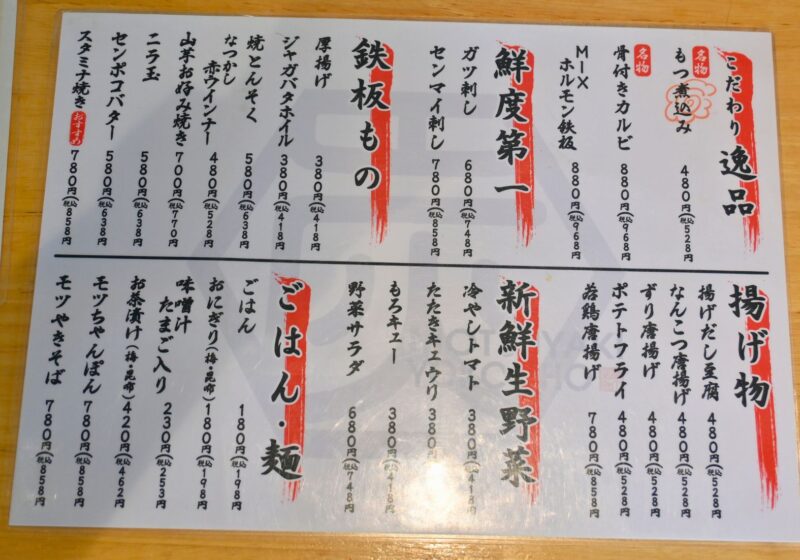 こだわり逸品
名物
もつ煮込み 480円(税込528円)
名物
骨付きカルビ 880円(税込968円)
MIXホルモン鉄板 880円(税込968円)
鮮度第一
ガツ刺し 680円(税込748円)
センマイ刺し 780円(税込858円)
鉄板もの
厚揚げ 380円(税込418円)
ジャガバタホイル 380円(税込418円)
焼とんそく 580円(税込638円)
なつかし
赤ウインナー 480円(税込528円)
山芋お好み焼き 700円(税込770円)
ニラ玉 580円(税込638円)
センポコバター 580円(税込638円)
スタミナ焼き おすすめ 780円(税込858円)
揚げ物
揚げだし豆腐 480円(税込528円)
なんこつ唐揚げ 480円(税込528円)
ずり唐揚げ 480円(税込528円)
ポテトフライ 480円(税込528円)
若鶏唐揚げ 780円(税込858円)
新鮮生野菜
冷やしトマト 380円(税込418円)
たたきキュウリ 380円(税込
もろキュー 380円(税込418円)
野菜サラダ 680円(税込748円)
ごはん・麺
ごはん 180円(税込198円)
おにぎり(梅・昆布) 180円(税込198円)
味噌汁
たまご入り 230円(税込253円)
お茶漬け(梅・昆布) 420円(税込462円)
モツちゃんぽん 780円(税込858円)
モツやきそば 780円(税込858円)